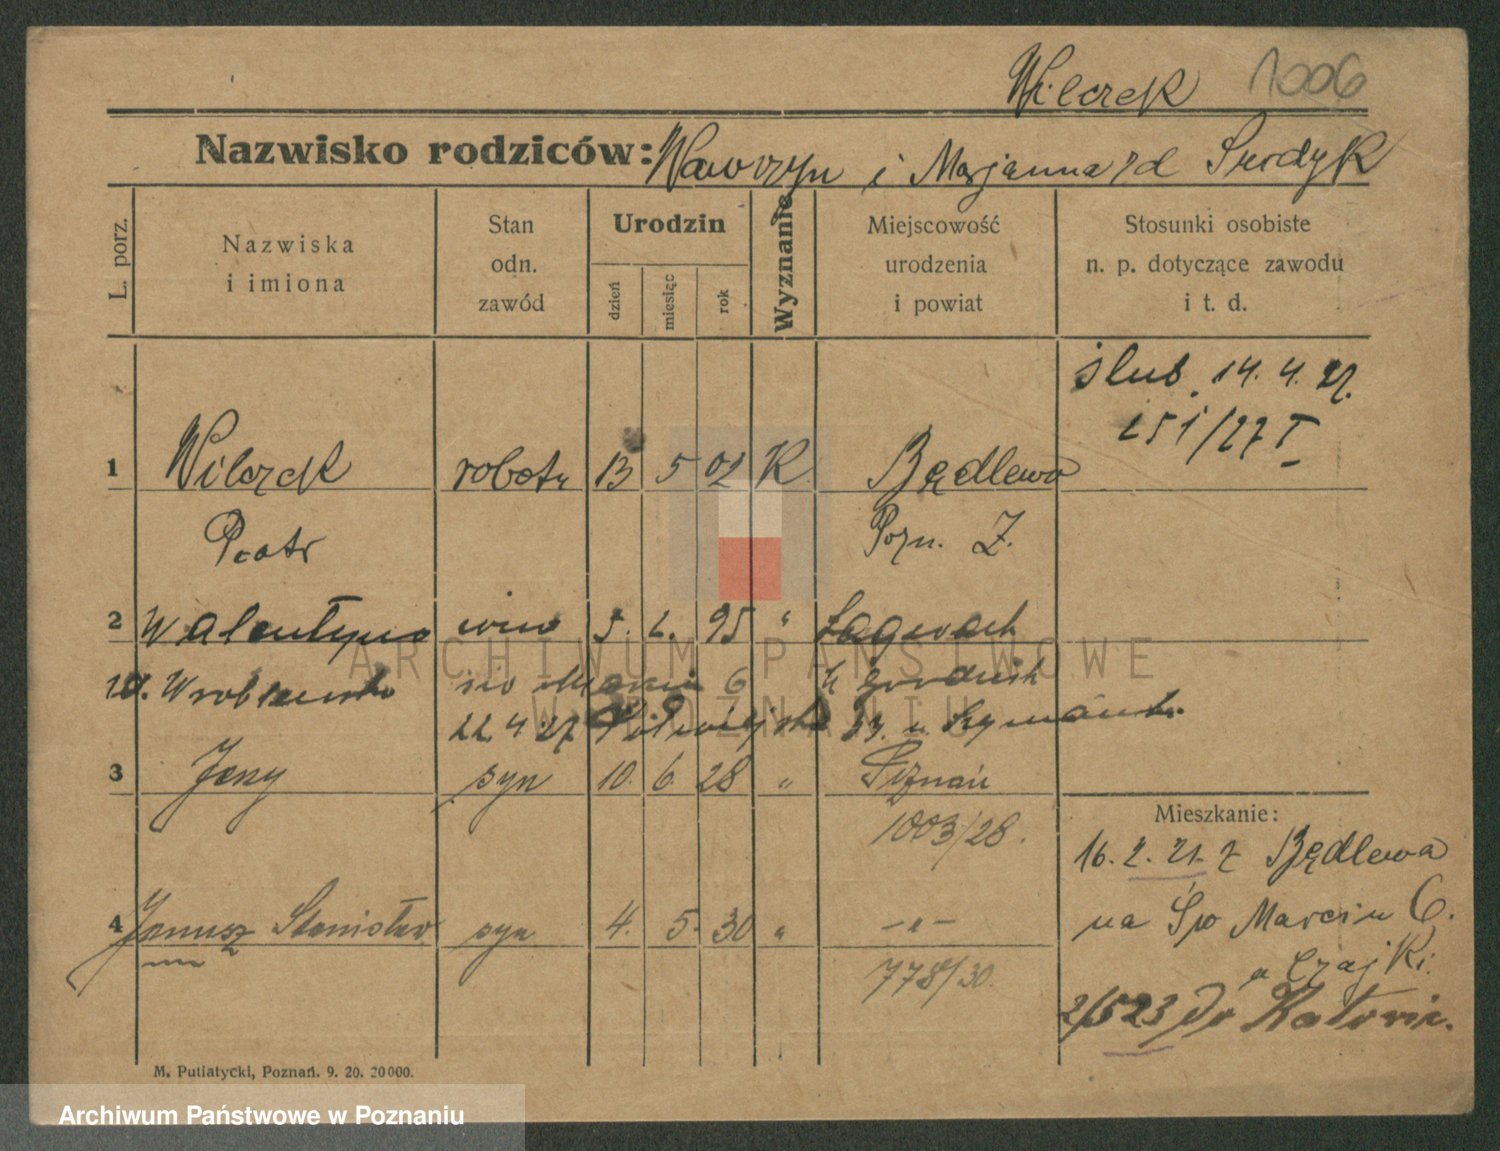 Wilczek 1006
Nazwisko rodziców: Wawrzyn i Marjanna rd Surdyk
L. porz.
Nazwiska
i imiona
Stan
odn.
zawód
Urodzin
dzień
miesiąc
rok
Wyznanie
Miejscowość
urodzenia
i powiat
Stosunki osobiste
n. p. dotyczące zawodu
i t. d.
ślub. 14. 4. 27.
251/27 I
1 Wilczek robotn 13 5 02 K Będlewo
Piotr Pozn. Z.
2 Walentyna 5. 2. 95 "
rd. Wroblewska 6
22. 4 27 Półwiejska u
3 Jerzy syn 10. 6. 28 " Poznań
1003/28.
4 Janusz Stanisław syn 4. 5. 30 " -"-
778/30.
Mieszkanie:
16. 2. 21. z Będlewa
na Św Marcin 6.
a Czajki.
2/5 23 do Katowic.
M. Putiatycki, Poznań. 9. 20. 20000.
ARCHIWUM PAŃSTWOWE
W POZNANIU
Archiwum Państwowe w Poznaniu